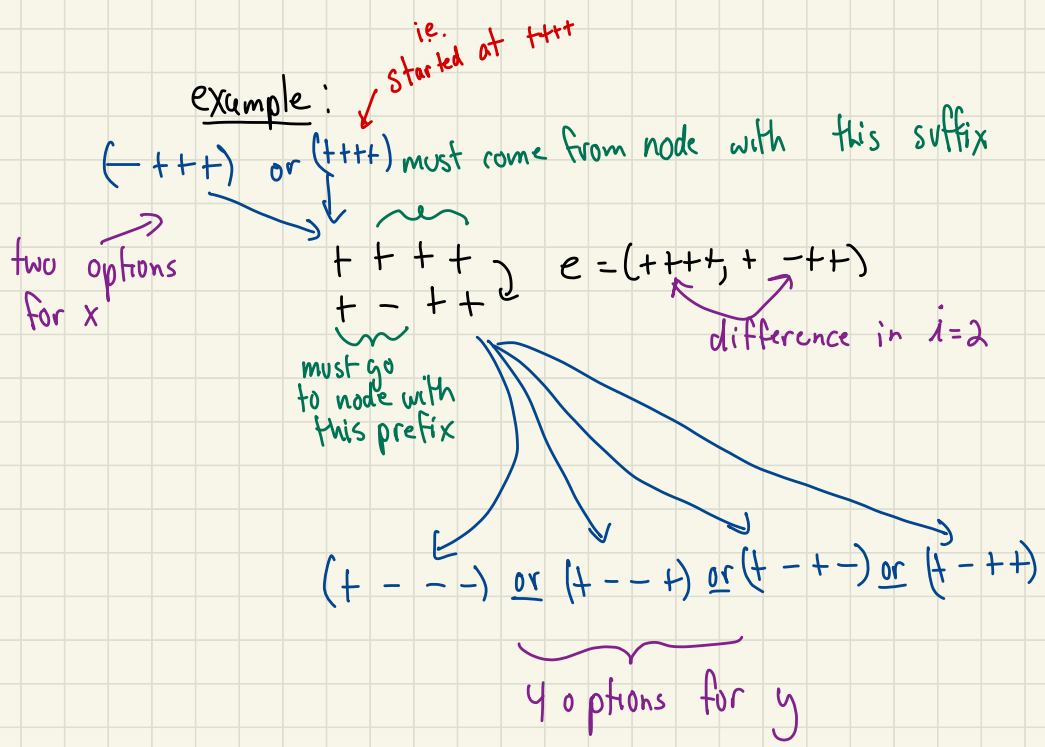 i.e.
started at ++++
example:
(- +++) or (++++) must come from node with this suffix
two options
for x
+ + + +
e = (++++, + -++)
+ - + +
difference in i=2
must go
to node with
this prefix
(+ - - -) or (+ - - +) or (+ - + -) or (+ - ++)
4 options for y